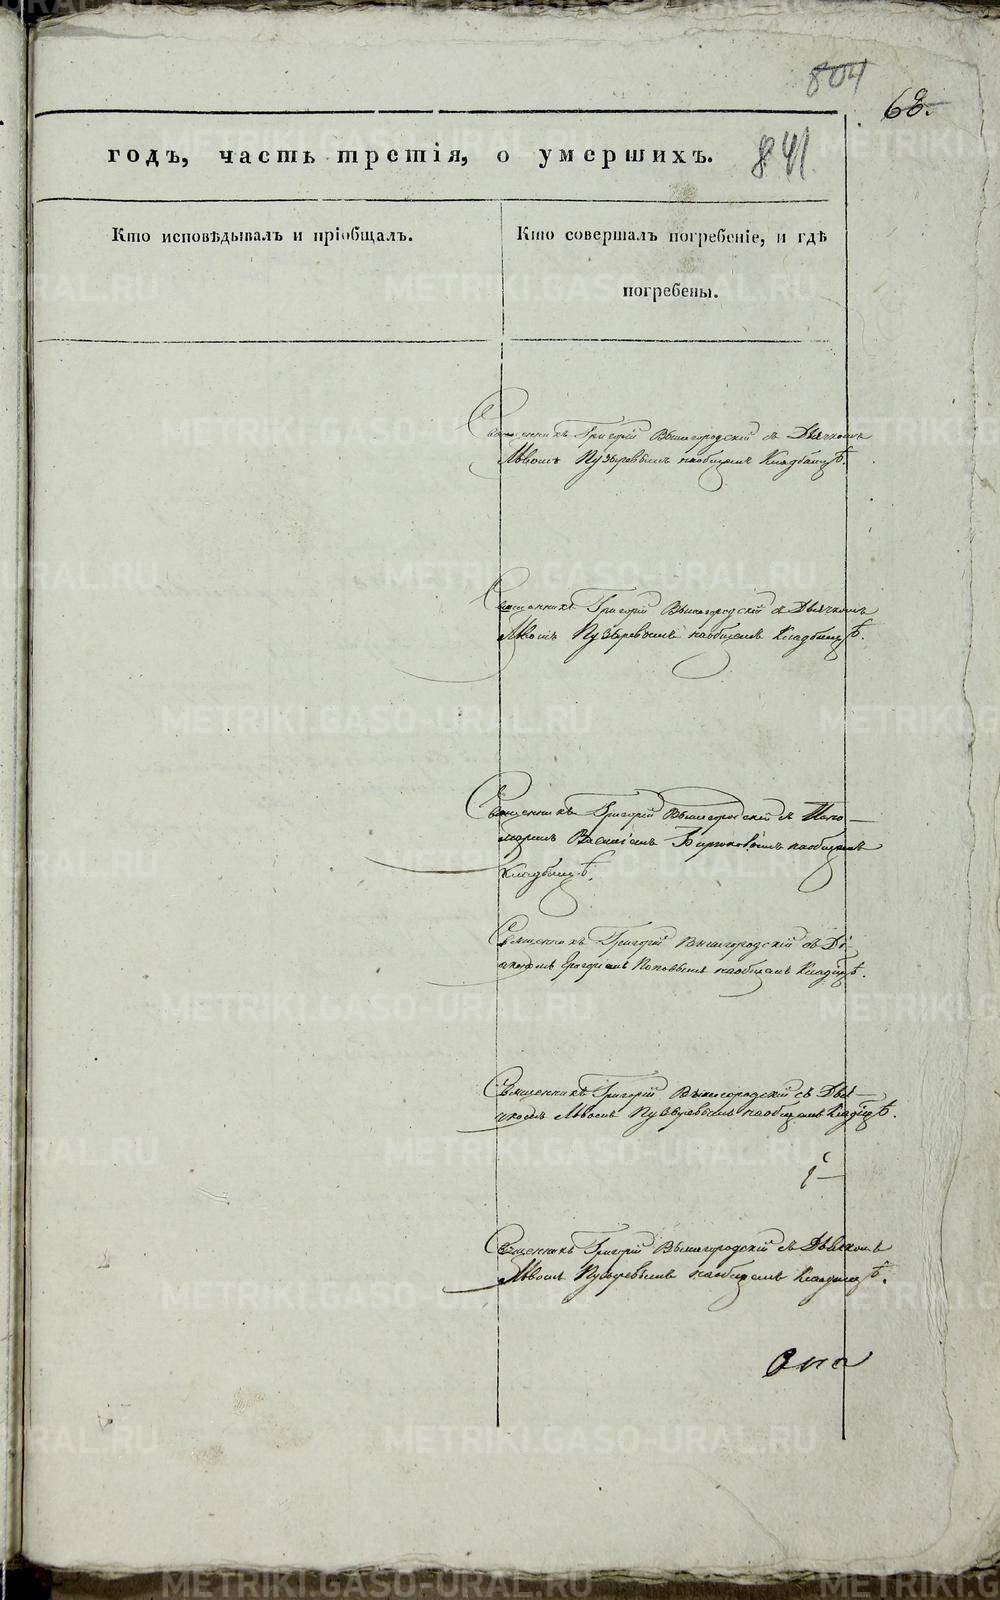 804
68.
годъ, часть третія, о умершихъ.
841
Кто исповѣдывалъ и пріобщалъ.
Кто совершалъ погребеніе, и гдѣ
погребены.
Священникъ Григорій Вышегородскій съ Дьячкомъ
Львомъ Пузыревымъ наобщемъ Кладбищѣ.
Священникъ Григорій Вышегородскій съ Дьячкомъ
Львомъ Пузыревымъ наобщемъ Кладбищѣ.
Священникъ Григорій Вышегородскій съ Поно-
маремъ Василіемъ Бирюковымъ наобщемъ
Кладбищѣ.
Священникъ Григорій Вышегородскій съ Ді-
акономъ Григоріемъ Поповымъ наобщемъ Кладбищѣ.
Священникъ Григорій Вышегородскій съ Дья-
чкомъ Львомъ Пузыревымъ наобщемъ Кладбищѣ.
Священникъ Григорій Вышегородскій съ Дьячкомъ
Львомъ Пузыревымъ наобщемъ Кладбищѣ.
METRIKI.GASO-URAL.RU